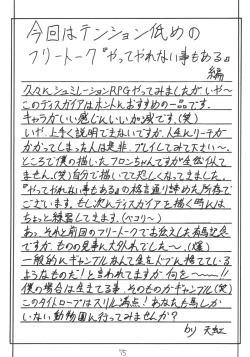 今回はテンション低めの
フリートーク『やってやれない事もある』
編
久々にシュミレーションRPGやってみましたがいや〜
このディスガイアはホントにおすすめの一品です。
キャラがいい感じにいい加減です。(笑)
いや、上手く説明できないですが、人生にリーチが
かかってしまった人は是非、プレイしてみて下さい〜。
ところで僕の描いたフロンちゃんですが全然似て
ません。(笑)自分で描いてて悲しくなってきました。
『やってやれない事もある』の格言通り諦めた所存で
ございます。もし次にディスガイアを描く時には
ちょっと練習してきます。(ペコリ〜)
あっ、それと前回のフリートークでもお伝えした有馬記念
ですが、ものの見事に大外れでした〜。(爆)
一般的にギャンブルなんて金をドブに捨てている
ようなものだ!と言われてますが何を〜〜〜!!
僕の場合は生きてる事、そのものがギャンブル(笑)
このタイトロープはスリル満点!あなたも馬しか
いない動物園に行ってみませんか?
by 天紅
75